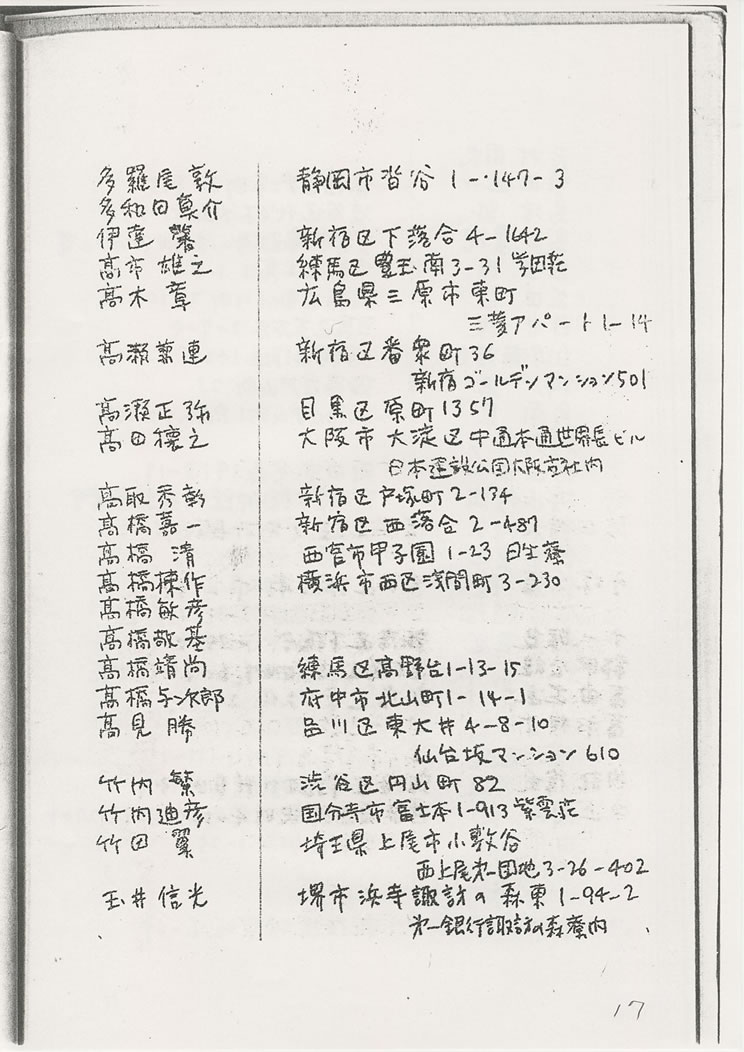 多羅尾敦 静岡市沓谷 1-147-3
多和田真介
伊達 馨 新宿区下落合 4-1642
高市雄之 練馬区豊玉南3-31
高木 章 広島県三原市東町
三菱アパート1-14
高瀬 連 新宿区番衆町36
新宿ゴールデンマンション501
高瀬正弥 目黒区原町1357
高田穣之 大阪市大淀区中通本通世界長ビル
日本建設公団大阪支社内
高取秀彰 新宿区戸塚町2-134
高橋嘉一 新宿区西落合2-487
高橋 清 西宮市甲子園1-23 日生寮
高橋棟作 横浜市西区浅間町3-230
高橋敏彦
高橋敬基
高橋靖尚 練馬区高野台1-13-15
高橋与次郎 府中市北山町1-14-1
高見 勝 品川区東大井4-8-10
仙台坂マンション610
竹内 繁 渋谷区円山町82
竹内迪彦 国分寺市富士本1-913紫雲荘
竹田 翼 埼玉県上尾市小敷谷
西上尾第一団地3-26-402
玉井信光 堺市浜寺諏訪の森東1-94-2
第一銀行諏訪の森寮内
17